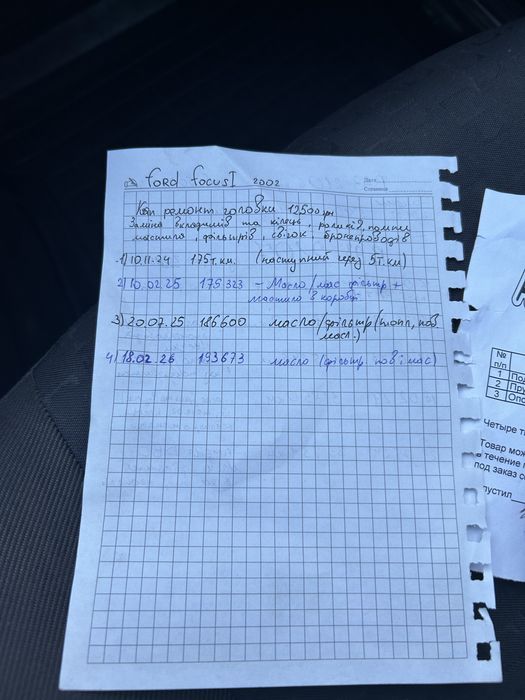 Ford Focus I 2002
Дата
Сторінка
Кап ремонт головки 19500грн
Заміна вкладишів та кілець, роликів, помпи
мастила, фільтрів, свічок, бронепроводів
1) 10.11.24 175т.км. (наступний через 5т.км)
2) 10.02.25 175323 - Масло/мас фільтр +
мастило в коробці
3) 20.07.25 186600 масло/фільтр(топл, пов.
масл.)
4) 18.02.26 193673 масло (фільтр пов і мас)
№
п/п
1 По
2 Пру
3 Опо
Четыре т
Товар мож
течение
под заказ с
пустил